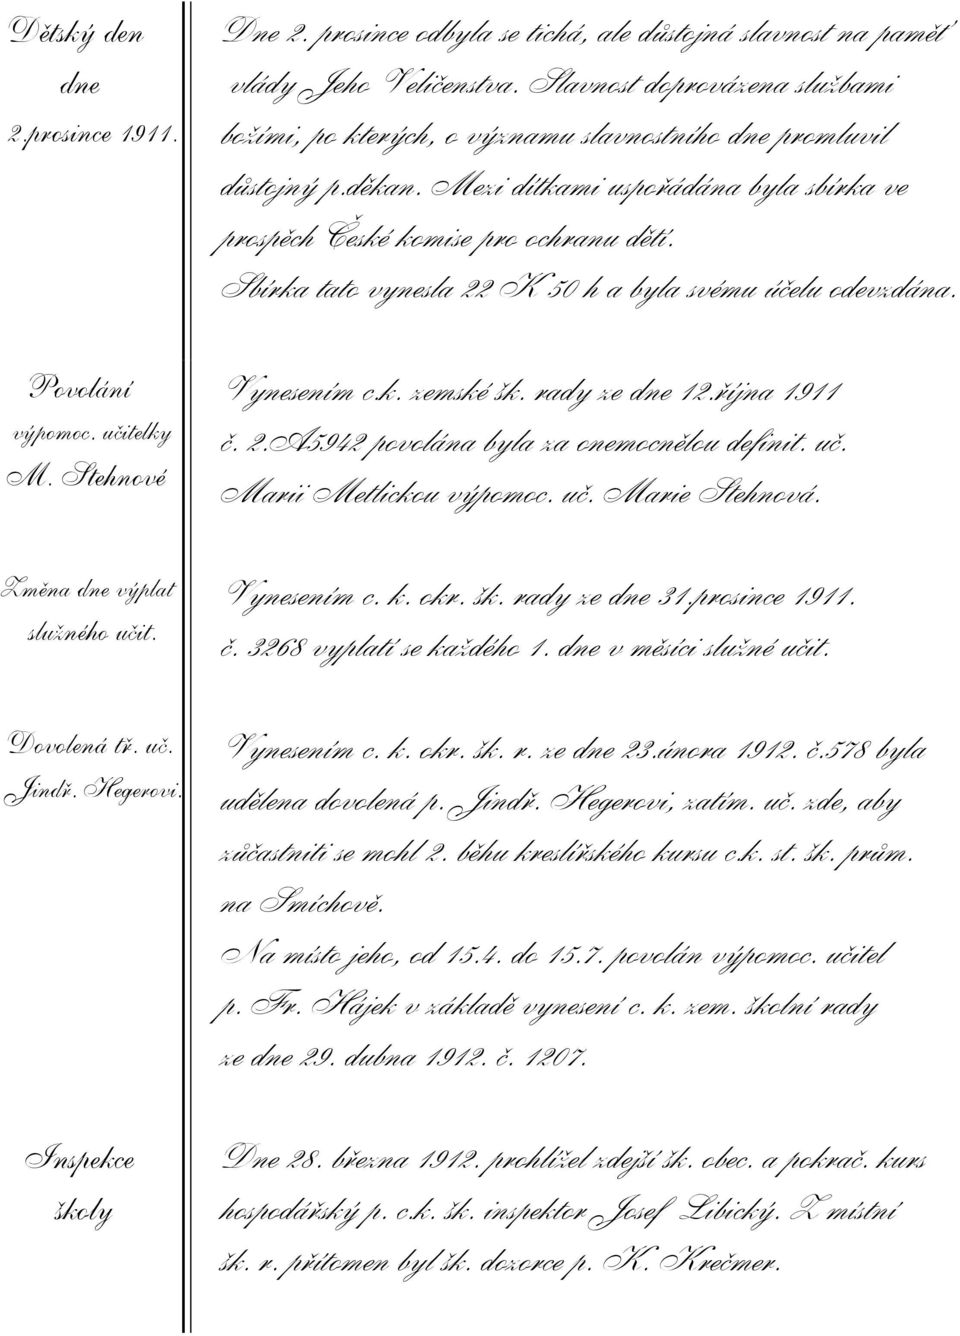 Dětský den
dne
2.prosince 1911.
Dne 2. prosince odbyla se tichá, ale důstojná slavnost na paměť
vlády Jeho Veličenstva. Slavnost doprovázena službami
božími, po kterých, o významu slavnostního dne promluvil
důstojný p.děkan. Mezi dítkami uspořádána byla sbírka ve
prospěch České komise pro ochranu dětí.
Sbírka tato vynesla 22 K 50 h a byla svému účelu odevzdána.
Povolání
výpomoc. učitelky
M. Stehnové
Vynesením c.k. zemské šk. rady ze dne 12.října 1911
č. 2.A5942 povolána byla za onemocnělou definit. uč.
Marii Metlickou výpomoc. uč. Marie Stehnová.
Změna dne výplat
služného učit.
Vynesením c. k. okr. šk. rady ze dne 31.prosince 1911.
č. 3268 vyplatí se každého 1. dne v měsíci služné učit.
Dovolená tř. uč.
Jindř. Hegerovi.
Vynesením c. k. okr. šk. r. ze dne 23.února 1912. č.578 byla
udělena dovolená p. Jindř. Hegerovi, zatím. uč. zde, aby
zůčastniti se mohl 2. běhu kreslířského kursu c.k. st. šk. prům.
na Smíchově.
Na místo jeho, od 15.4. do 15.7. povolán výpomoc. učitel
p. Fr. Hájek v základě vynesení c. k. zem. školní rady
ze dne 29. dubna 1912. č. 1207.
Inspekce
školy
Dne 28. března 1912. prohlížel zdejší šk. obec. a pokrač. kurs
hospodářský p. c.k. šk. inspektor Josef Libický. Z místní
šk. r. přítomen byl šk. dozorce p. K. Krečmer.